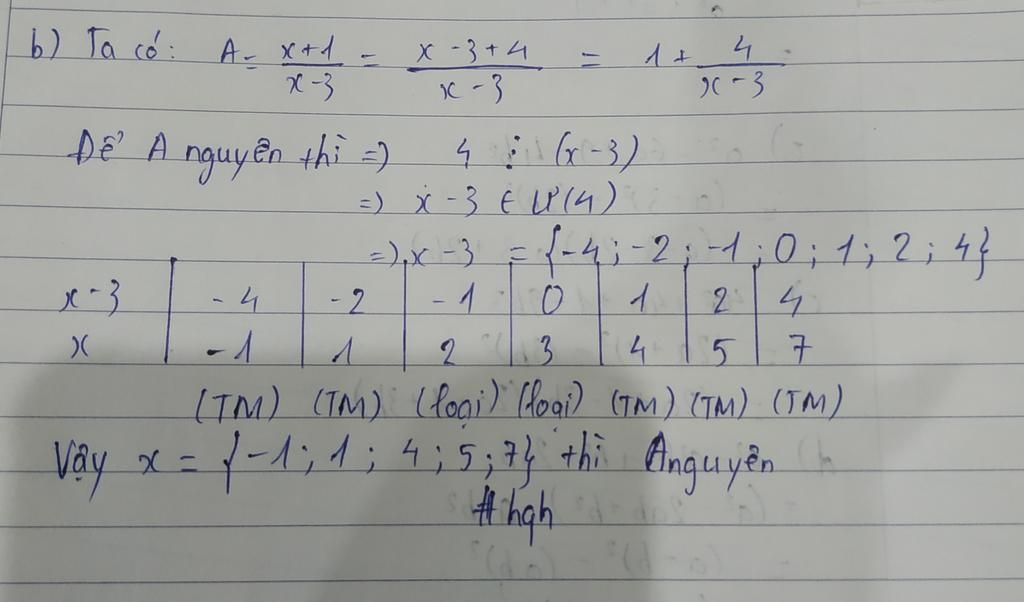 b) Ta có: A = x+1/x-3 = x-3+4/x-3 = 1 + 4/x-3
Để A nguyên thì => 4 ⋮ (x-3)
=> x-3 ∈ Ư(4)
=> x-3 = {-4; -2; -1; 0; 1; 2; 4}
x-3 | -4 | -2 | -1 | 0 | 1 | 2 | 4
x | -1 | 1 | 2 | 3 | 4 | 5 | 7
(TM) (TM) (loại) (loại) (TM) (TM) (TM)
Vậy x = {-1; 1; 4; 5; 7} thì A nguyên
#hgh